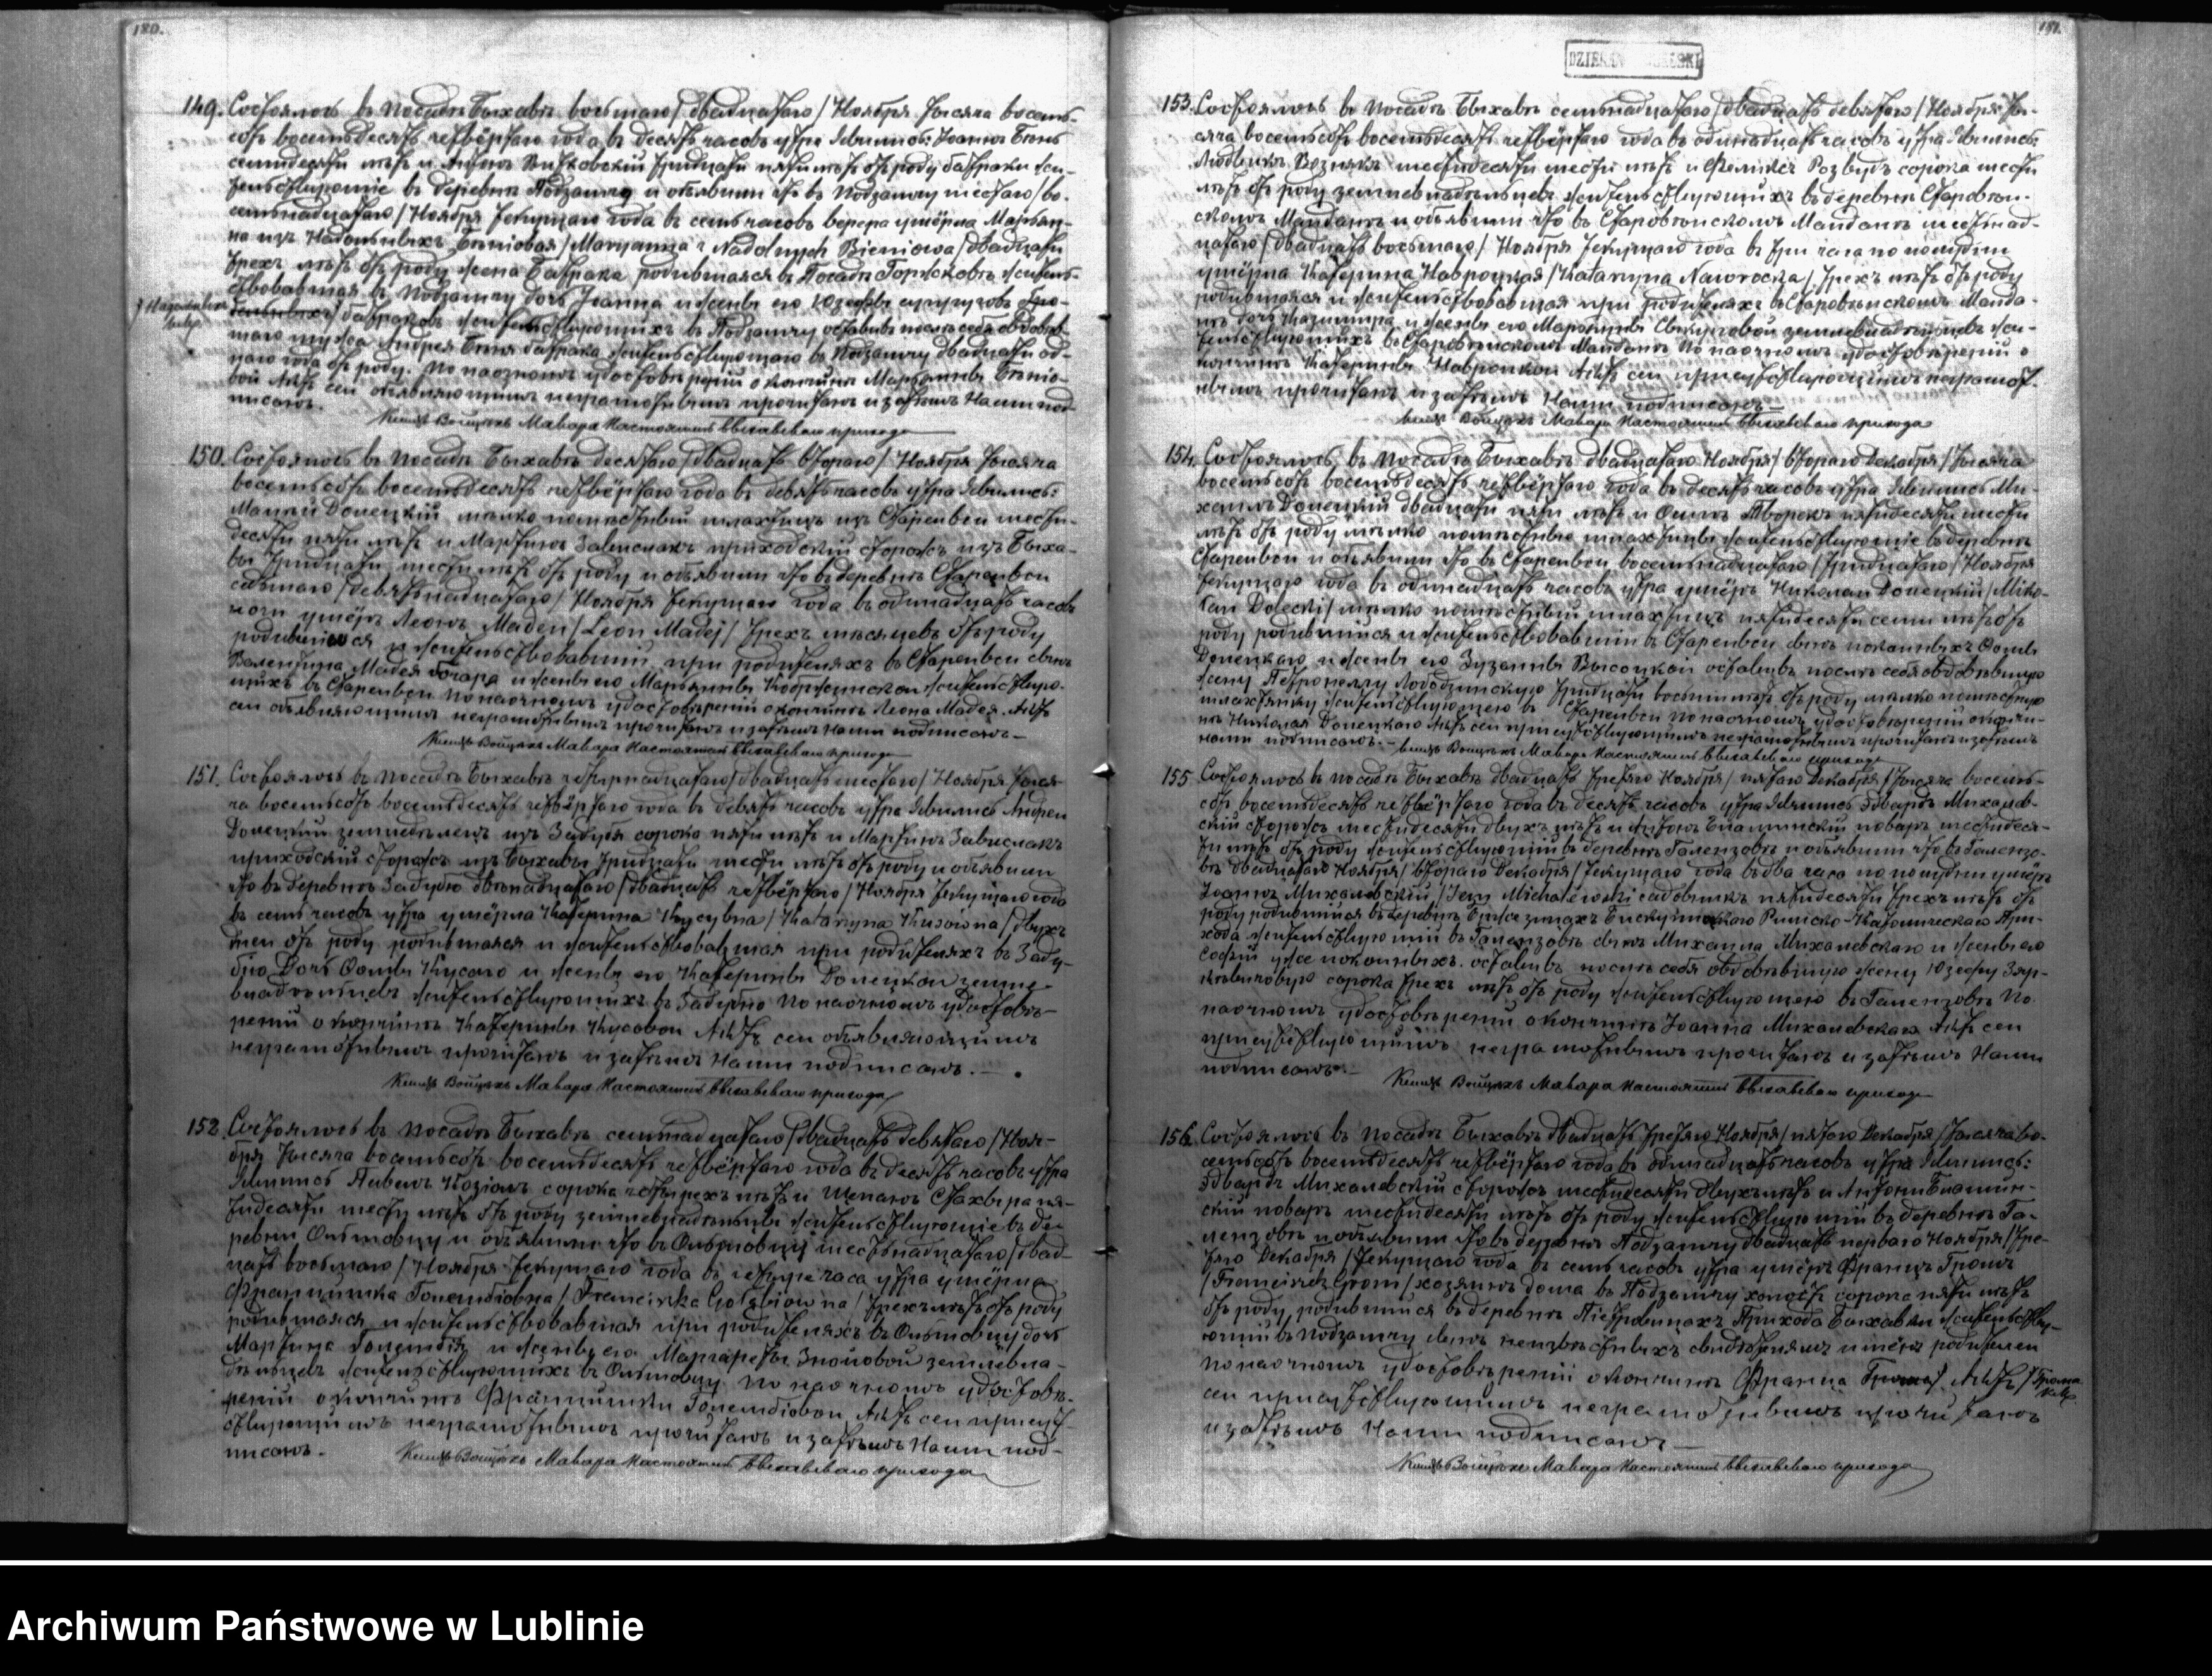 180.
149. Состоялось в Посадѣ Быхавѣ восьмаго/двадцатаго/Ноября тысяча восемь-
сотъ восемьдесятъ четвёртаго года въ десять часовъ утра Явились: Іоаннъ Бѣнь
семидесяти лѣтъ и Антонъ тридцати пяти лѣтъ отъ роду батраки жи-
тельствующіе въ деревнѣ Подзамчу и объявили что въ Подзамчу шестаго/во-
семьнадцатаго/Ноября текущаго года въ семь часовъ вечера умерла Марьян-
на изъ Надольныхъ Бѣніовая/Maryanna z Nadolnych Bieniowa/двадцати
трехъ лѣтъ отъ роду жена батрака, родившаяся въ Посадѣ Горжковѣ житель-
ствовавшая въ Подзамчу дочь Іоанна и жены его Юзефы супруговъ
батраковъ жительствующихъ въ Подзамчу оставивъ послѣ себя овдовѣв-
шаго мужа Андрея Бѣня батрака жительствующаго въ Подзамчу двадцати од-
ного года отъ роду. По наочномъ удостовѣреніи о кончинѣ Марьянны Бѣніо-
вой Актъ сей объявляющимъ неграмотнымъ прочитанъ и затѣмъ Нами под-
писанъ.
Ксендзъ Войцѣхъ Мавара Настоятель Быхавскаго прихода
150. Состоялось въ Посадѣ Быхавѣ десятаго/двадцать втораго/Ноября тысяча
восемьсотъ восемьдесятъ четвёртаго года въ девять часовъ утра Явились:
Матей Донецкій мѣлко помѣстный шляхтичъ изъ Старейвси шести-
десяти пяти лѣтъ и Мартинъ Завислакъ приходскій сторожъ изъ Быха-
вы тридцати шести лѣтъ отъ роду и объявили что въ деревнѣ Старейвси
седьмаго/девятьнадцатаго/Ноября текущаго года въ одинадцать часовъ
ночи умеръ Леонъ Мадей/Leon Madej/трехъ мѣсяцевъ отъ роду
родившійся и жительствовавшій при родителяхъ въ Старейвси сынъ
Валентина Мадея и жены его Марьянны жительствую-
щихъ въ Старейвси По наочномъ удостовѣреніи о кончинѣ Леона Мадея. Актъ
сей объявляющимъ неграмотнымъ прочитанъ и затѣмъ Нами подписанъ.
Ксендзъ Войцѣхъ Мавара Настоятель Быхавскаго прихода
151. Состоялось въ Посадѣ Быхавѣ четырнадцатаго/двадцать шестаго/Ноября тыся-
ча восемьсотъ восемьдесятъ четвёртаго года въ девять часовъ утра Явились Андрей
Донецкій земледѣлецъ изъ Задубя сорока пяти лѣтъ и Мартинъ Завислакъ
приходскій сторожъ изъ Быхавы тридцати шести лѣтъ отъ роду и объявили
что въ деревнѣ Задубю двѣнадцатаго/двадцать четвёртаго/Ноября текущаго года
въ семь часовъ утра умерла Катерина Кусувна/Katarzyna Kusowna/двухъ
дней отъ роду родившаяся и жительствовавшая при родителяхъ въ Заду-
бю Дочь Осипа Кусаго и жены его Катерины Донецкой земле-
владѣльцевъ жительствующихъ въ Задубю По наочномъ удостовѣ-
реніи о кончинѣ Катерины Кусовой Актъ сей объявляющимъ
неграмотнымъ прочитанъ и затѣмъ Нами подписанъ.
Ксендзъ Войцѣхъ Мавара Настоятель Быхавскаго прихода
152. Состоялось въ Посадѣ Быхавѣ семнадцатаго/двадцать девятаго/Ноя-
бря тысяча восемьсотъ восемьдесятъ четвёртаго года въ десять часовъ утра
Явились Павелъ Козіолъ сорока четырехъ лѣтъ и Щепанъ Стахыра пя-
тидесяти шести лѣтъ отъ роду землевладѣльцы жительствующіе въ де-
ревни Ольшовцу и объявили что въ Ольшовцу шестьнадцатаго/двад-
цать восьмаго/Ноября текущаго года въ четыре часа утра умерла
Францишка Голембіовна/Franciszka Gołębiowna/трехъ лѣтъ отъ роду
родившаяся и жительствовавшая при родителяхъ въ Ольшовцу дочь
Мартина Голембія и жены его Маргареты Знойовой землевла-
дѣльцевъ жительствующихъ въ Ольшовцу По наочномъ удостовѣ-
реніи о кончинѣ Францишки Голембіовой Актъ сей присут-
ствующимъ неграмотнымъ прочитанъ и затѣмъ Нами под-
писанъ.
Ксендзъ Войцѣхъ Мавара Настоятель Быхавскаго прихода
181.
153. Состоялось въ Посадѣ Быхавѣ семьнадцатаго/двадцать девятаго/Ноября ты-
сяча восемьсотъ восемьдесятъ четвёртаго года въ одинадцать часовъ утра Явились:
Людвикъ Вознякъ шестидесяти шести лѣтъ и Феликсъ Розвудъ сорока шести
лѣтъ отъ роду землевладѣльцевъ жительствующихъ въ деревнѣ Старовѣй-
скомъ Майданѣ и объявили что въ Старовѣйскомъ Майданѣ шестьнад-
цатаго/двадцать восьмаго/Ноября текущаго года въ три часа по полудни
умерла Катерина Навроцкая/Katarzyna Nawrocka/трехъ лѣтъ отъ роду
родившаяся и жительствовавшая при родителяхъ въ Старовѣйскомъ Майда-
нѣ дочь Казимира и жены его Марьянны землевладѣльцевъ жи-
тельствующихъ въ Старовѣйскомъ Майданѣ По наочномъ удостовѣреніи о
кончинѣ Катерины Навроцкой Актъ сей присутствующимъ неграмот-
нымъ прочитанъ и затѣмъ Нами подписанъ
Ксендзъ Войцѣхъ Мавара Настоятель Быхавскаго прихода
154. Состоялось въ Посадѣ Быхавѣ двадцатаго Ноября/втораго Декабря/тысяча
восемьсотъ восемьдесятъ четвёртаго года въ десять часовъ утра Явились Ми-
хаилъ Донецкій двадцати пяти лѣтъ и Осипъ Творекъ пятидесяти шести
лѣтъ отъ роду мѣлко помѣстные шляхтичы жительствующіе въ деревнѣ
Старейвси и объявили что въ Старейвси восемьнадцатаго/тридцатаго/Ноября
текущаго года въ одинадцать часовъ утра умеръ Николай Донецкій/Miko-
łaj Dolecki/мѣлко помѣстный шляхтичъ пятидесяти семи лѣтъ отъ
роду родившійся и жительствовавшій въ Старейвси сынъ покойныхъ Осипа
Донецкаго и жены его Зузанны Высоцкой оставивъ послѣ себя овдовѣвшую
жену Петронеллу Лободзинскую тридцати восьми лѣтъ отъ роду мѣлко помѣстную
шляхтянку жительствующую въ Старейвси По наочномъ удостовѣреніи о кончи-
нѣ Николая Донецкаго Актъ сей присутствующимъ неграмотнымъ прочитанъ и затѣмъ
Нами подписанъ. Ксендзъ Войцѣхъ Мавара Настоятель Быхавскаго прихода
155. Состоялось въ Посадѣ Быхавѣ двадцать третяго Ноября/пятаго Декабря/тысяча восемь-
сотъ восемьдесятъ четвёртаго года въ десять часовъ утра Явились Эдвардъ Михалев-
скій сторожъ шестидесяти двухъ лѣтъ и Антонъ поваръ шестидеся-
ти лѣтъ отъ роду жительствующій въ деревнѣ Галензовѣ и объявили что въ Галензо-
вѣ двадцатаго Ноября/втораго Декабря/текущаго года въ два часа по полудни умеръ
Іоаннъ Михалевскій/ Michalewski садовникъ пятидесяти трехъ лѣтъ отъ
роду родившійся въ деревнѣ Римско-Католическаго При-
хода жительствующій въ Галензовѣ сынъ Михаила Михалевскаго и жены его
Софіи уже покойныхъ. оставивъ послѣ себя овдовѣвшую жену Юзефу
сорока трехъ лѣтъ отъ роду жительствующею въ Галензовѣ По
наочномъ удостовѣреніи о кончинѣ Іоанна Михалевскаго Актъ сей
присутствующимъ неграмотнымъ прочитанъ и затѣмъ Нами
подписанъ.
Ксендзъ Войцѣхъ Мавара Настоятель Быхавскаго прихода
156. Состоялось въ Посадѣ Быхавѣ двадцать третяго Ноября/пятаго Декабря/тысяча во-
семьсотъ восемьдесятъ четвёртаго года въ одинадцать часовъ утра Явились:
Эдвардъ Михалевскій сторожъ шестидесяти двухъ лѣтъ и Антони
поваръ шестидесяти лѣтъ отъ роду жительствующій въ деревнѣ Га-
лензовѣ и объявили что въ деревнѣ Подзамчу двадцать перваго Ноября/тре-
тяго Декабря/текущаго года въ семь часовъ утра умеръ Францъ Громъ
/Franciszek Grom/хозяинъ дома въ Подзамчу холостъ сорока пяти лѣтъ
отъ роду, родившійся въ деревнѣ Прихода Быхавы жительству-
ющій въ Подзамчу сынъ неизвѣстныхъ свидѣтелямъ имёнъ родителей
По наочномъ удостовѣреніи о кончинѣ Франца Актъ/Грома
сей присутствующимъ неграмотнымъ прочитанъ
и затѣмъ Нами подписанъ
Ксендзъ Войцѣхъ Мавара Настоятель Быхавскаго прихода
Archiwum Państwowe w Lublinie